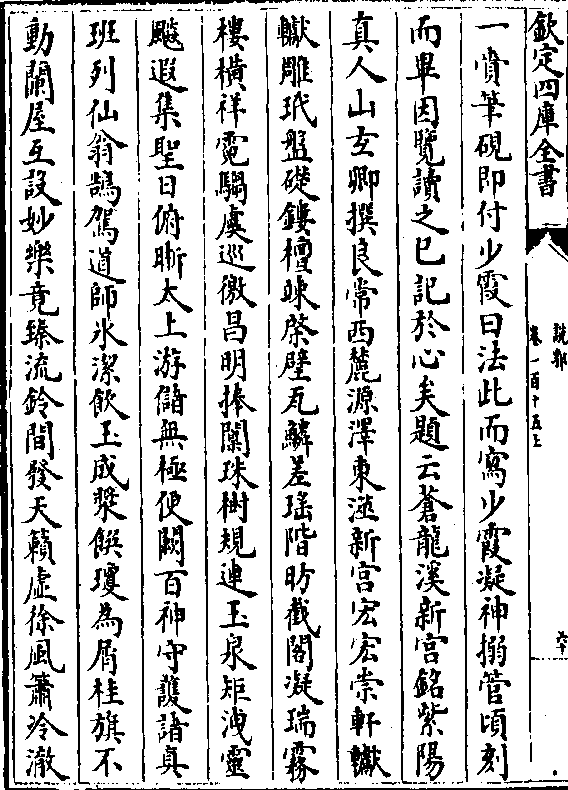 欽定四庫全書
說郛
卷一百十五上
六十
一賫筆硯即付少霞曰法此而寫少霞凝神搦管頃刻
而畢因覽讀之已記於心矣題云蒼龍溪新宫銘紫陽
真人山玄卿撰良常西麓源澤東溢新宫宏宏崇軒轍
轍雕珉盤礎鏤檀竦棨壁瓦鱗差瑶階昉截閣凝瑞霧
樓横祥霓騶虞巡徼昌明捧闑珠樹規連玉泉矩洩靈
飈遐集聖日俯晣太上游儲無極便闕百神守護諸真
班列仙翁鵠駕道師氷潔飲玉成漿饌瓊為屑桂旗不
動蘭屋互設妙樂竟臻流鈴間發天籟虚徐風簫泠澈